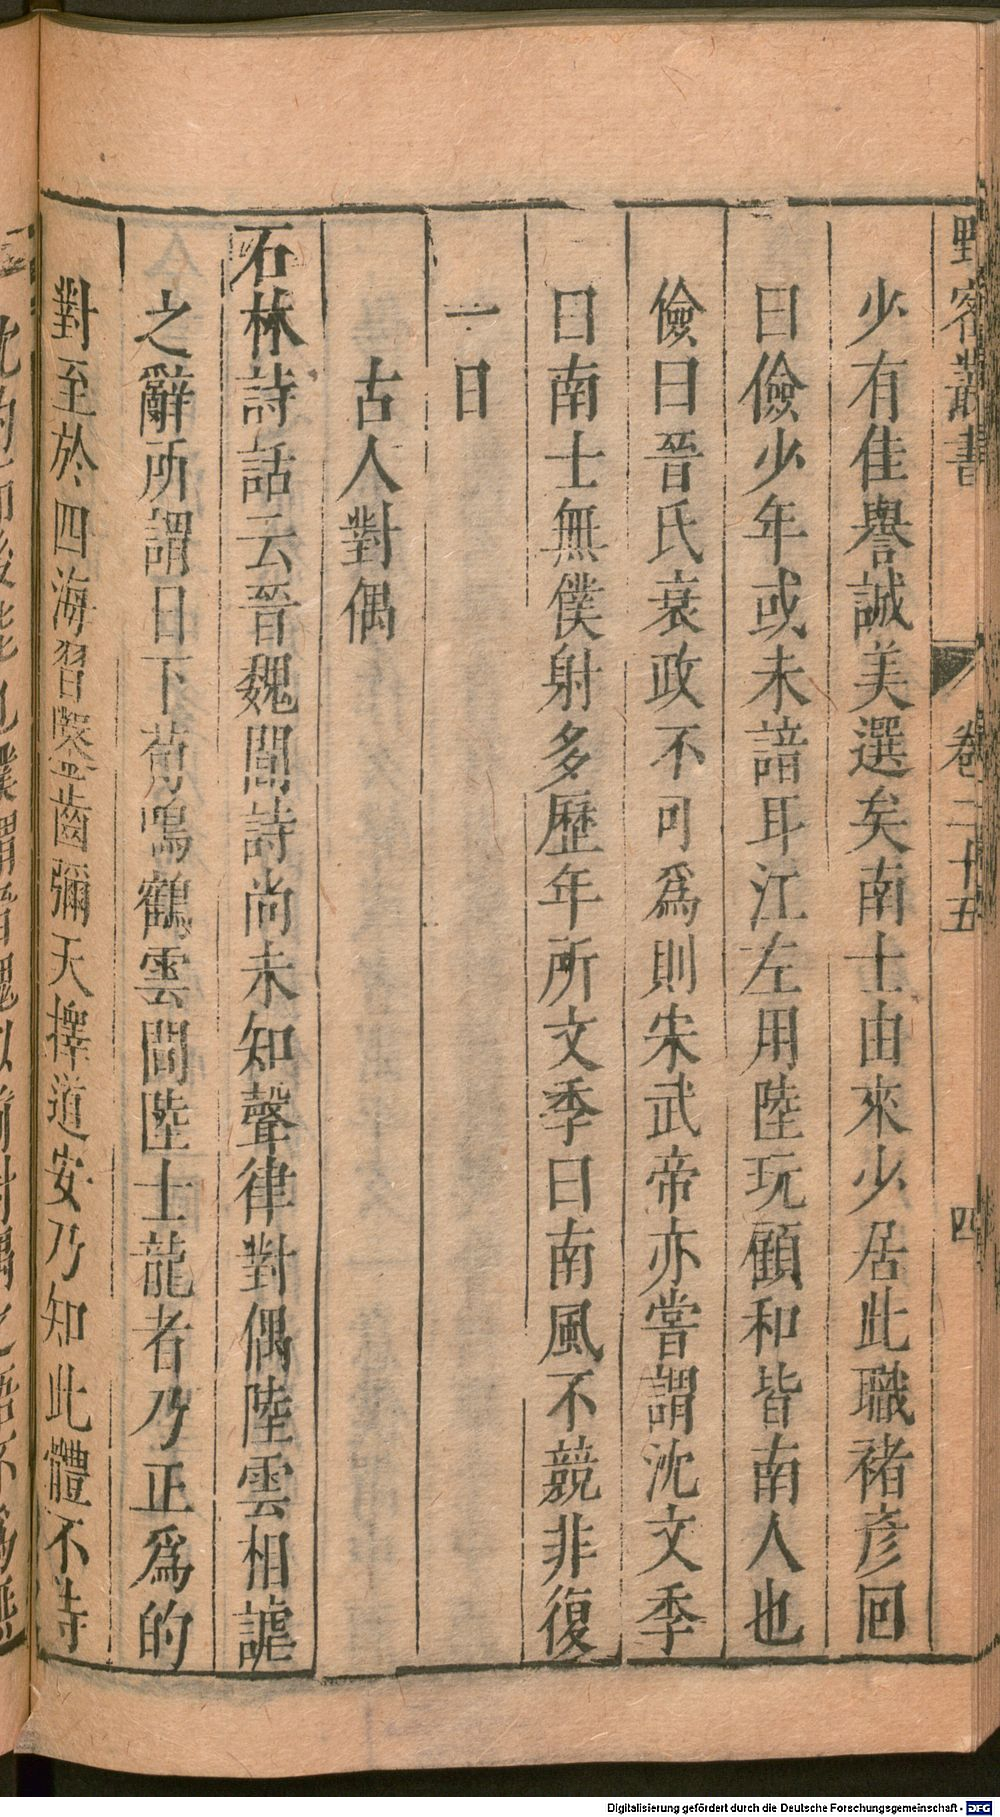 野客叢書 卷二十五 四
少有佳譽誠美選矣南士由來少居此職褚彥回
曰儉少年或未諳耳江左用陸玩顧和皆南人也
儉曰晉氏衰政不可爲則宋武帝亦嘗謂沈文季
曰南士無僕射多歷年所文季曰南風不競非復
一日
古人對偶
石林詩話云晉魏間詩尚未知聲律對偶陸雲相謔
之辭所謂日下荀鳴鶴雲間陸士龍者乃正爲的
對至於四海習鑿齒彌天擇道安乃知此體不待
Digitalisierung gefördert durch die Deutsche Forschungsgemeinschaft - DFG